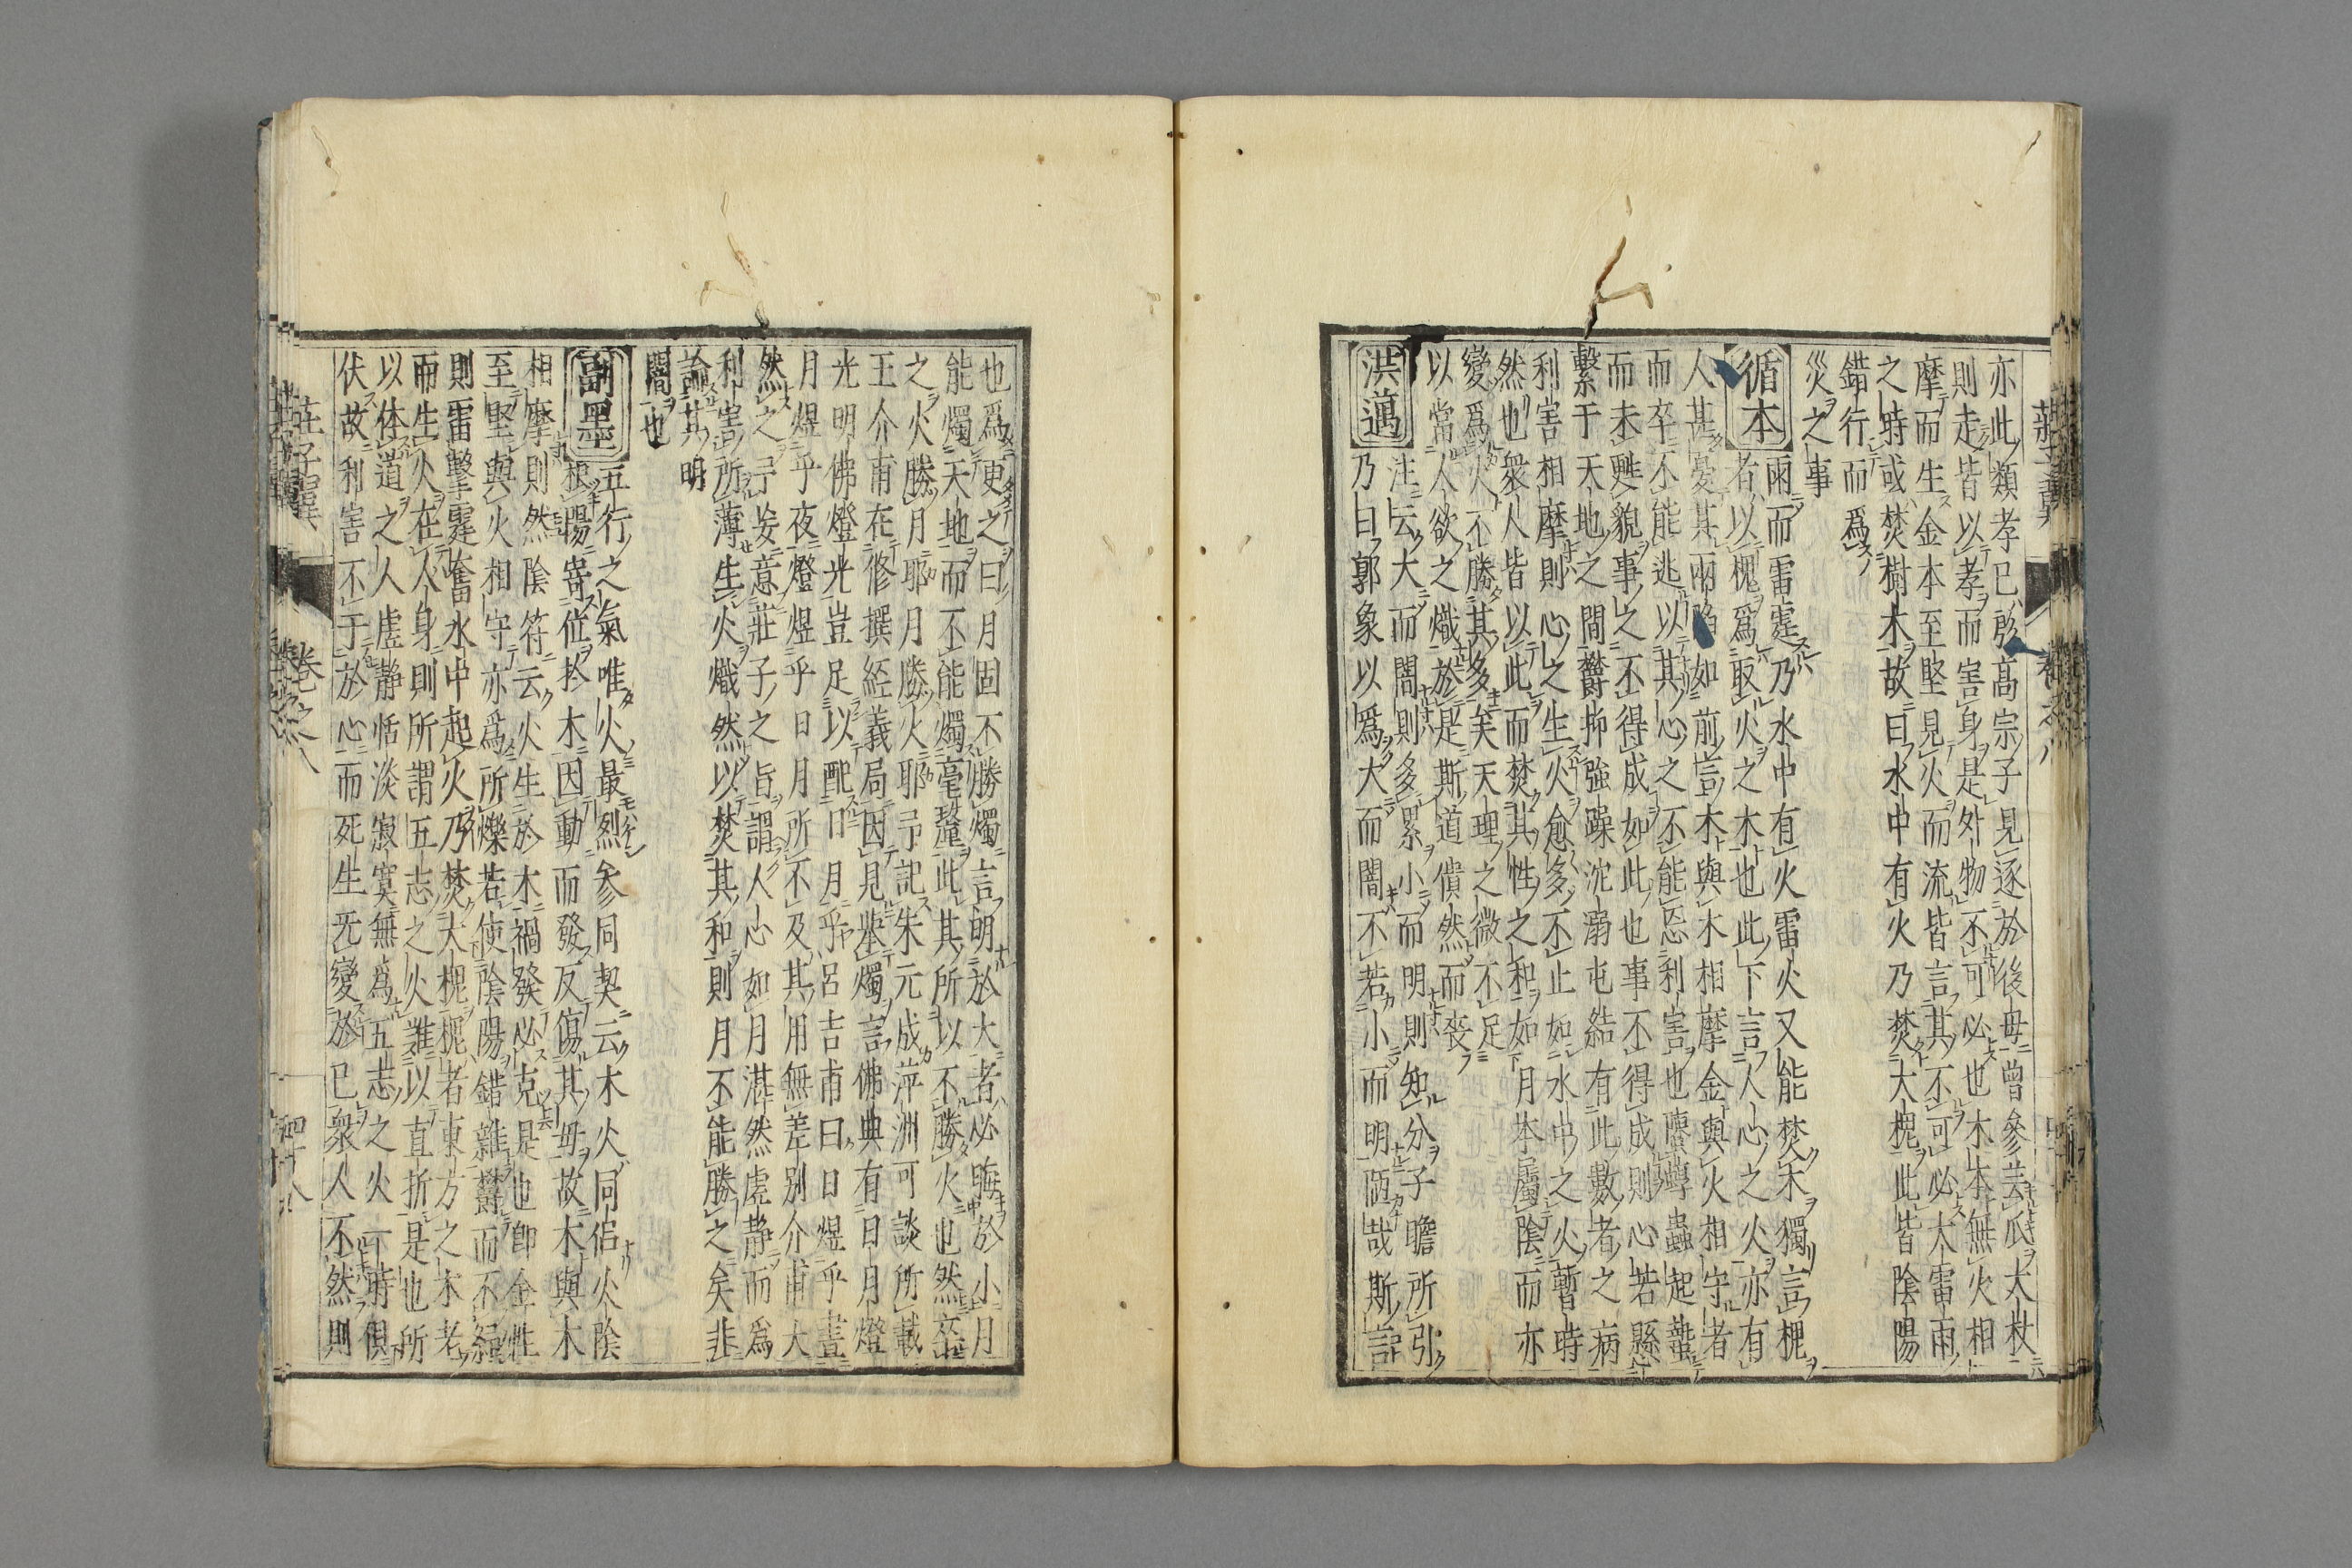 亦此類孝已啟高宗子見逐於後母曾參芸瓜大杖
則走皆以孝而害身是外物不可必也木本無火相
摩而生金本至堅見火而流皆言其不可必大雷雨
之時或焚樹木故曰水中有火乃焚大槐此皆陰陽
錯行而為
災之事
循本
雨而雷霆乃水中有火雷火又能焚木獨言槐
者以槐為取火之木也此下言人心之火亦有
人甚憂其兩陷如前言木與木相摩金與火相守者
而卒不能逃以其心之不能忘利害也䗥蜳蟲起蟄
而未甦貌事之不得成如此也事不得成則心若縣
繫于天地之間鬱抑強躁沈溺屯結有此數者之病
利害相摩則心之生火愈多不止如水中之火暫時
然也眾人皆以此而焚其性之和如月本屬陰而亦
變為火不勝其多矣天理之微不足
以當人欲之熾於是斯道僓然而喪
洪邁
注云大而闇則多累小而明則知分子瞻所引
乃曰郭象以為大而闇不若小而明陋哉斯言
也為更之曰月固不勝燭言明於大者必晦於小月
能燭天地而不能燭毫釐此其所以不勝火也然卒
之火勝月耶月勝火耶予記朱元成萍洲可談所載
王介甫在修撰經義局因見舉燭言佛典有日月燈
光明佛燈光豈足以配日月乎呂吉甫曰日煜乎晝
月煜乎夜燈煜乎日月所不及其用無差別介甫大
然之予妄意莊子之旨謂人心如月湛然虛靜而為
利害所薄生火熾然以焚其和則月不能勝之矣非
論其明
闇也
副墨
五行之氣唯火最烈參同契云木火同侶火陰
根陽寄位於木因動而發反傷其母故木與木
相摩則然陰符云火生於木禍發必克是也即金性
至堅與火相守亦為所爍若使陰陽錯雜鬱而不舒
則雷擊霆奮水中起火乃焚大槐槐者東方之木老
而生火在人身則所謂五志之火難以直折是也所
以体道之人虛静恬淡寂寞無為五志之火一時俱
伏故利害不于於心而死生旡變於已衆人不然則
莊子翼 卷之八 四十八